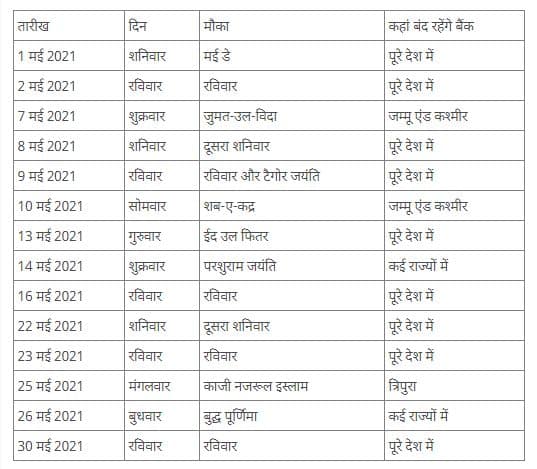 तारीख दिन मौका कहां बंद रहेंगे बैंक
1 मई 2021 शनिवार मई डे पूरे देश में
2 मई 2021 रविवार रविवार पूरे देश में
7 मई 2021 शुक्रवार जुमत-उल-विदा जम्मू एंड कश्मीर
8 मई 2021 शनिवार दूसरा शनिवार पूरे देश में
9 मई 2021 रविवार रविवार और टैगोर जयंति पूरे देश में
10 मई 2021 सोमवार शब-ए-कद्र जम्मू एंड कश्मीर
13 मई 2021 गुरुवार ईद उल फितर पूरे देश में
14 मई 2021 शुक्रवार परशुराम जयंति कई राज्यों में
16 मई 2021 रविवार रविवार पूरे देश में
22 मई 2021 शनिवार दूसरा शनिवार पूरे देश में
23 मई 2021 रविवार रविवार पूरे देश में
25 मई 2021 मंगलवार काजी नजरूल इस्लाम त्रिपुरा
26 मई 2021 बुधवार बुद्ध पूर्णिमा कई राज्यों में
30 मई 2021 रविवार रविवार पूरे देश में